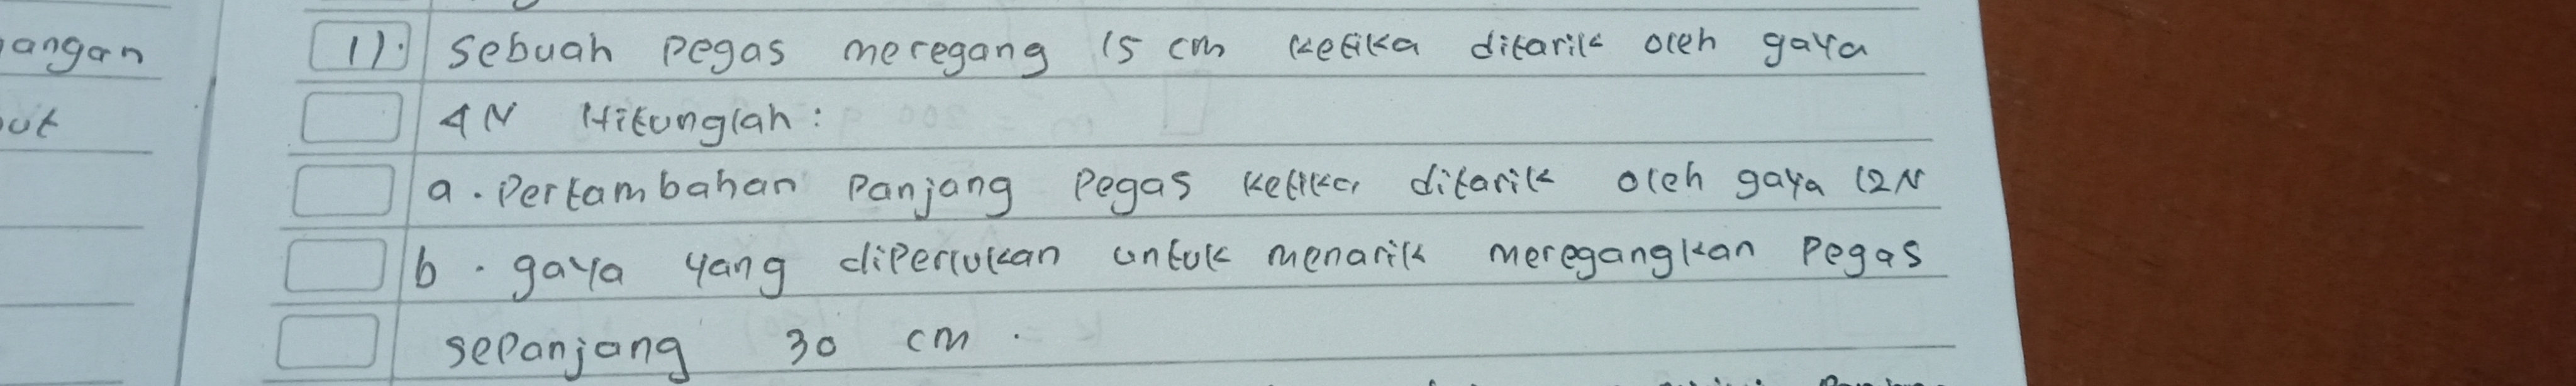 angan
ut
1). Sebuah pegas meregang 15 cm ketika ditarik oleh gaya
4N Hitunglah:
a. Pertambahan Panjang Pegas ketika ditarik oleh gaya 12N
b. gaya yang diperlukan untuk menarik meregangkan Pegas
sepanjang 30 cm.